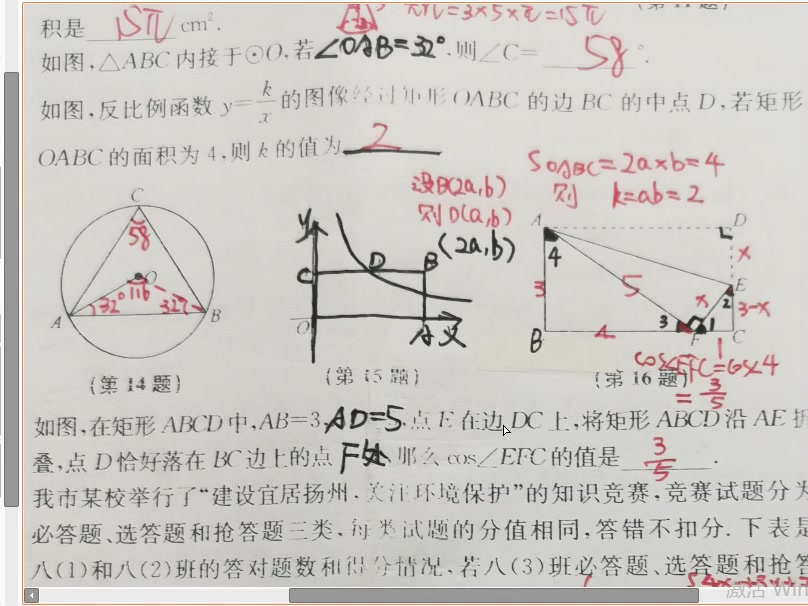 积是 15π cm².
π×r×l=3×5×π=15π
如图,△ABC内接于⊙O,若∠OAB=32°.则∠C= 58 °.
如图,反比例函数 y=k/x 的图像经过矩形OABC的边BC的中点D,若矩形
OABC的面积为4,则k的值为 2
SOABC=2a×b=4
则 k=ab=2
设B(2a,b)
则D(a,b)
(2a,b)
C
58
O
116
32°
32°
A
B
(第14题)
y
C
D
B
O
A
x
(第15题)
A
D
4
x
3
5
E
x
2
3-x
3
1
B
4
F
C
1
(第16题)
cos∠EFC=cos∠4
=3/5
如图,在矩形ABCD中,AB=3,AD=5,点E在边DC上,将矩形ABCD沿AE折
叠,点D恰好落在BC边上的点F处,那么cos∠EFC的值是 3/5 .
我市某校举行了“建设宜居扬州·关注环境保护”的知识竞赛,竞赛试题分为
必答题、选答题和抢答题三类,每类试题的分值相同,答错不扣分.下表是
八(1)和八(2)班的答对题数和得分情况,若八(3)班必答题、选答题和抢答
激活 Win